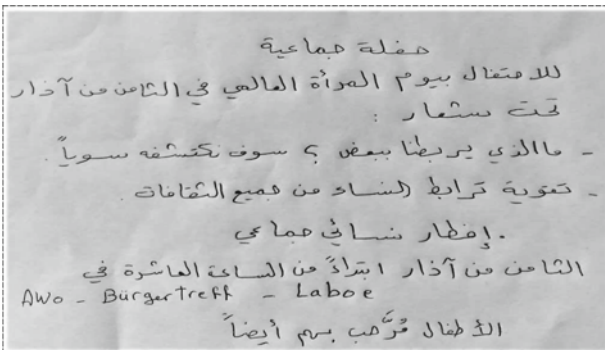 حفلة جماعية
للاحتفال بيوم المرأة العالمي في الثامن من آذار
تحت شعار :
- ما الذي يربطنا ببعض ؟ سوف نكتشفه سوياً .
- تعوية ترابط النساء من جميع الثقافات .
. إفطار نسائي جماعي
الثامن من آذار ابتداءً من الساعة العاشرة في
AWO - Bürgertreff - Laboe
الأطفال مُرَّحب بهم أيضاً